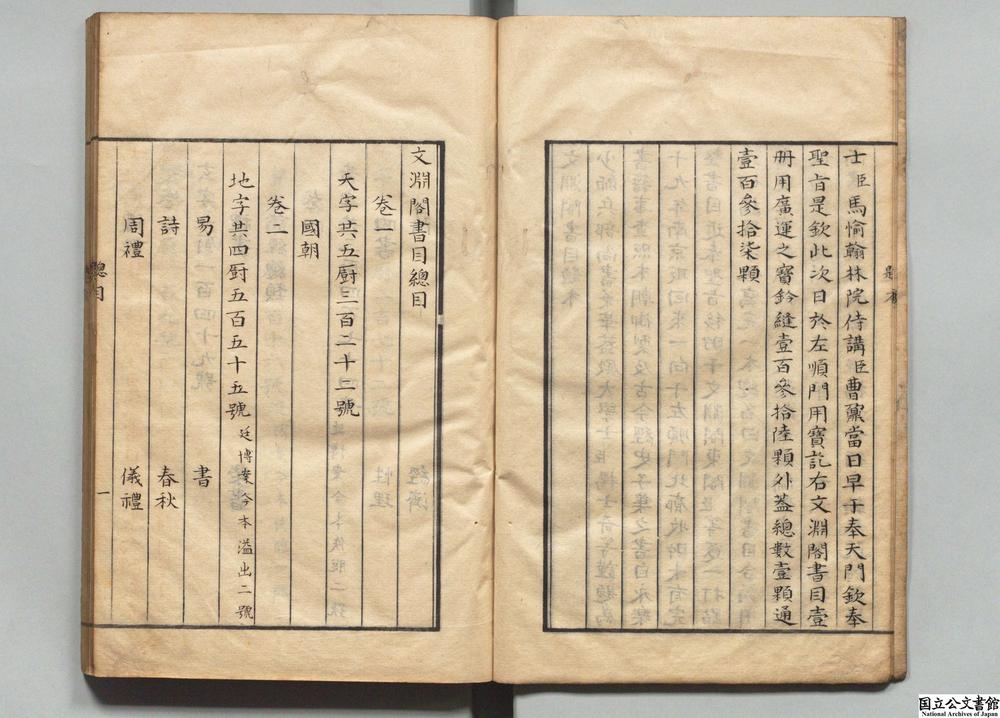 士臣馬愉翰林院侍講臣曹鼐當日早于奉天門欽奉
聖旨是欽此次日於左順門用寶訖右文淵閣書目壹
冊用廣運之寶鈐縫壹百參拾陸顆外蓋總數壹顆通
壹百參拾柒顆
文淵閣書目總目
卷一
天字共五厨三百二十二號
國朝
卷二
地字共四厨五百五十五號 廷博案今本溢出二號
易 書
詩 春秋
周禮 儀禮
總目
一
国立公文書館
National Archives of Japan